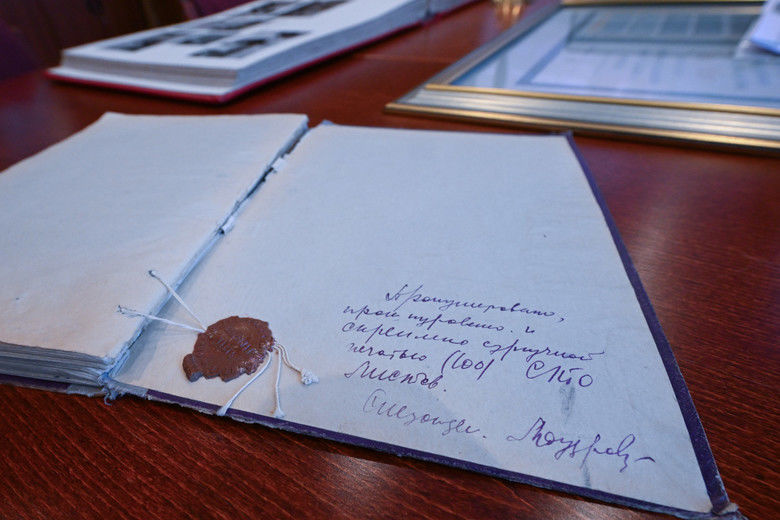 Пронумеровано,
прошнуровано и
скреплено сургучной
печатью (100) СТО
листов.